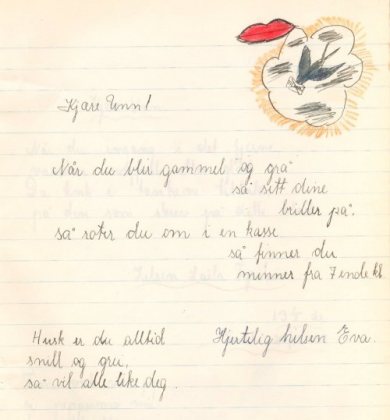 Kjære Unni!
Når du blir gammel og grå
så sett dine
briller på.
så roter du om i en kasse
så finner du
minner fra 7ende kl.
Husk er du alltid
snill og grei,
så vil alle like deg.
Hjertelig hilsen Eva.